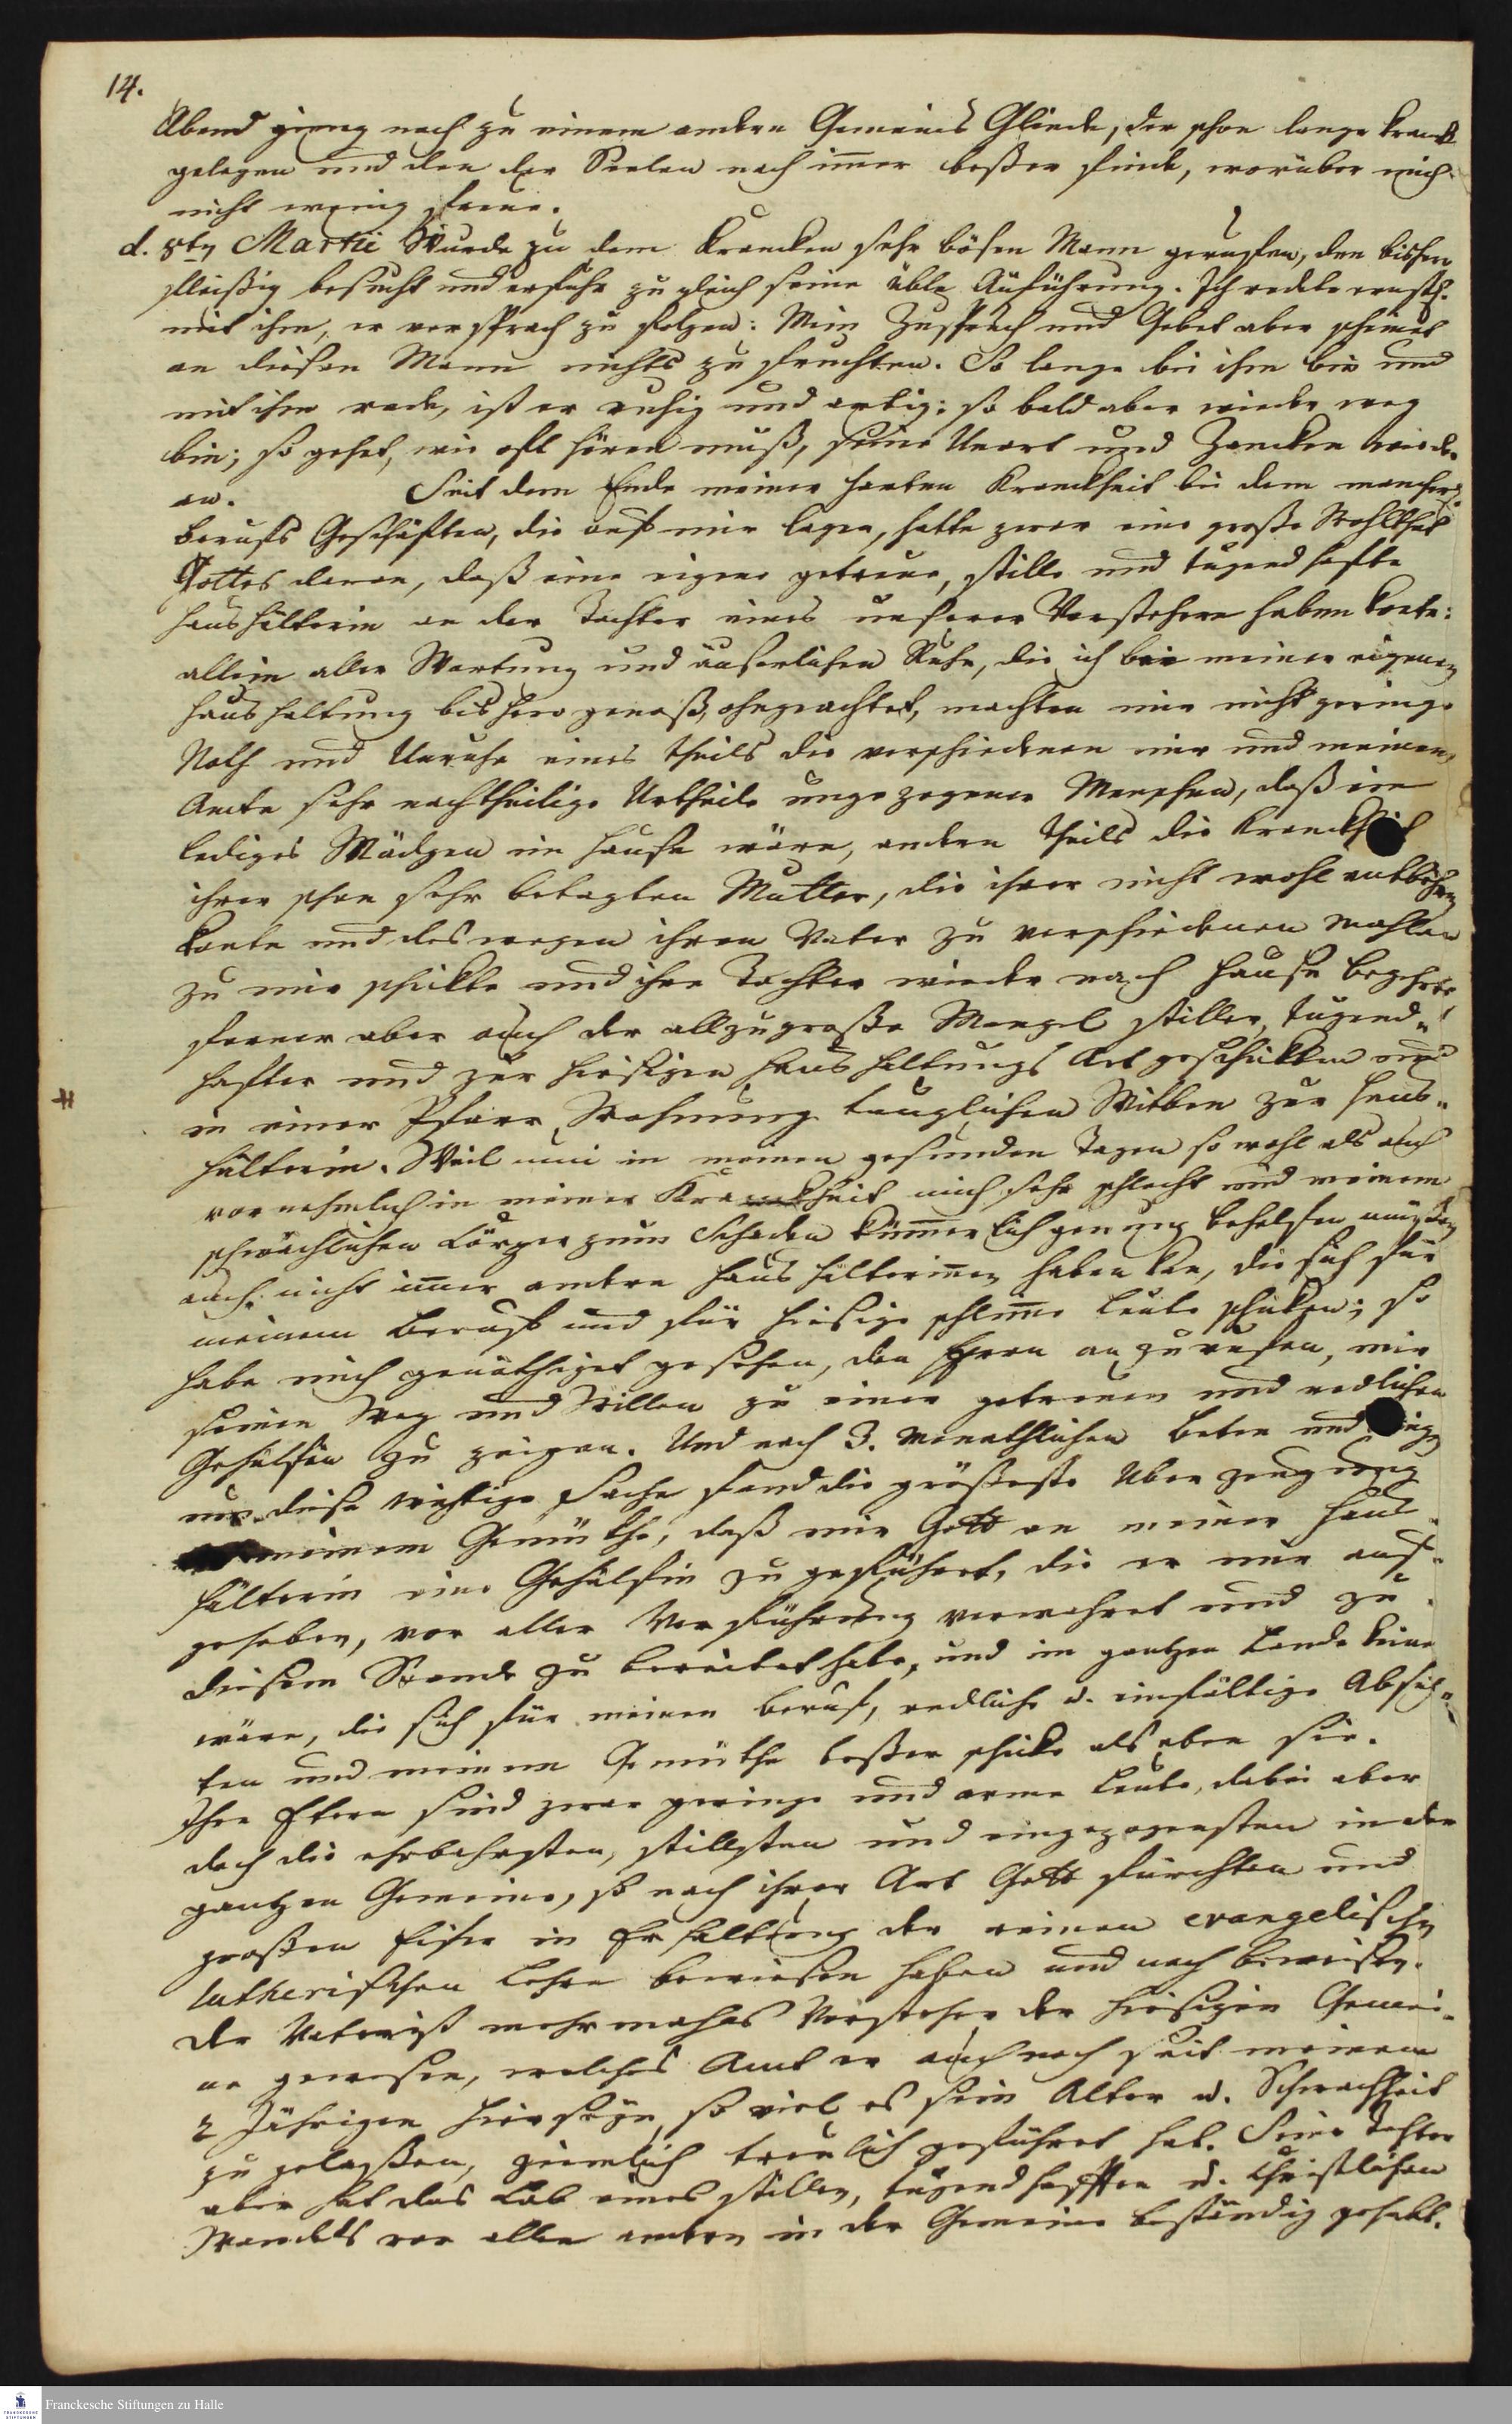 14.
Abend gieng noch zu einem andern Gemeins Gliede, der schon lange kranck
gelegen und den der Seelen nach im̄er beßer finde, worüber mich
nicht wenig freue.
d. 8ten Martii Wurde zu dem krancken sehr bösen Mann geruffen, den bisher
fleißig besucht und erfuhr zugleich seine üble Aufführung. Ich redete ernstl.
mit ihm, er versprach zu folgen: Mein Zuspruch und Gebet aber scheinet
an diesem Mann nichts zu fruchten. So lange bei ihm bin und
mit ihm rede, ist er ruhig und artig: so bald aber wieder weg
bin; so gehet, wie oft hören muß, seine Unart und Zancken wieder
an. Seit dem Ende meiner harten Kranckheit bei dem mancherl.
Berufs Geschäfften, die auf mir lagen, hatte zwar eine große Wohlthat
Gottes daran, daß eine eigene getreue, stille und tugendhafte
Haushälterin an der Tochter eines unserer Vorstehern haben konte:
allein aller Wartung und äuserlichen Ruhe, die ich bei meiner eigenen
Haushaltung bishero genoß, ohngeachtet, machten mir nicht geringe
Noth und Unruhe eines theils die verschiedenen mir und meinem
Amte sehr nachtheilige Urtheile ungezogener Menschen, daß ein
lediges Mädgen im Hause wäre, andern theils die Kranckheit
ihrer schon sehr betagten Mutter, die ihrer nicht wohl entbehren
konte und deswegen ihren Vater zu verschiedenen mahlen
zu mir schickte und ihre Tochter wieder nach Hause begehrte
ferner aber auch der allzugroße Mangel stiller, tugend-
hafter und zur hiesigen Haushaltungs Art geschickten und
in einer Pfarr Wohnung tauglichen Witben zur Haus-
hälterin. Weil nun in meinen gesunden Tagen so wohl als auch
vornehmlich in meiner Kranckheit mich sehr schlecht und meinem
schwächlichen Cörper zum Schaden küm̄erlich genung behelfen müßen
auch nicht im̄er andere Haushälterin̄en haben kan, die sich für
meinem Beruf und für hiesige schlim̄e Leute schicken; so
habe mich genöthiget gesehen, den Herrn anzurufen, mir
seinen Weg und Willen zu einer getreuen und redlichen
Gehülfin zu zeigen. Und nach 3. monathlichen Beten und
um diese wichtige Sache fand die größeste Uberzeugung
meinem Gemüthe, daß mir Gott an meiner Haus-
hälterin eine Gehülfin zugeführet, die er mir auf-
gehoben, vor aller Verführung verwahret und zu
diesem Stande zubereitet habe, und im gantzen Lande keine
wäre, die sich für meinen Beruf, redliche u. einfältige Absich-
ten und meinem Gemüthe beßer schicke als eben sie.
Ihre Eltern sind zwar geringe und arme Leute, dabei aber
doch die ehrbahrsten, stillesten und eingezogensten in der
gantzen Gemeine, so nach ihrer Art Gott fürchten und
großen Eifer in Erhaltung der reinen evangelischen
lutherischen Lehre bewiesen haben und noch beweisen.
Der Vater ist mehrmahls Vorsteher der hiesigen Gemei-
ne gewesen, welches Amt er auch noch seit meinem
2 Jährigen Hierseyn, so viel es sein Alter u. Schwachheit
zugelaßen, ziemlich treulich geführet hat. Seine Tochter
aber hat das Lob eines stillen, tugendhafften u. Christlichen
Wandels vor allen andern in der Gemeine beständig gehabt.
Franckesche Stiftungen zu Halle